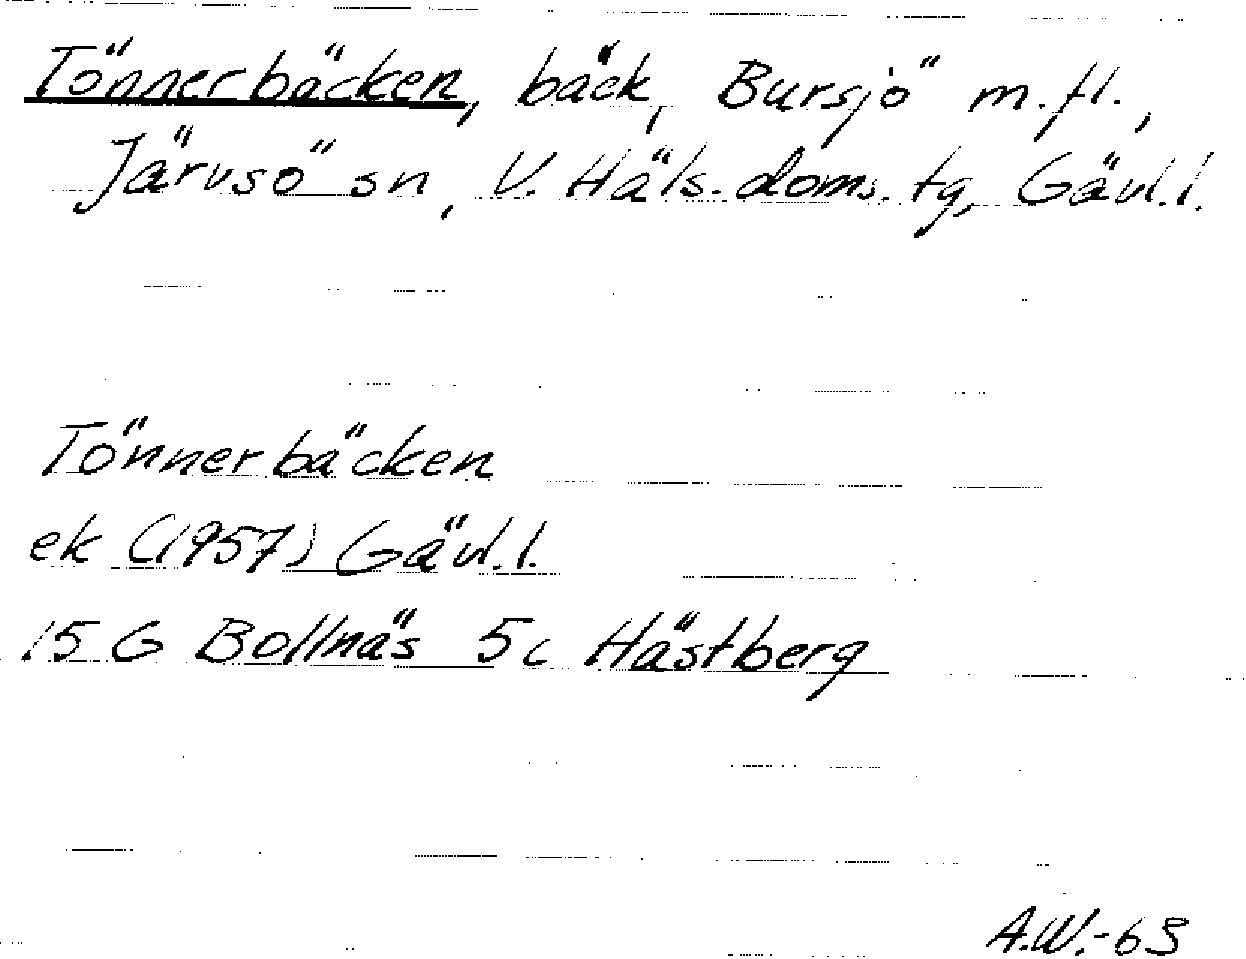 Tönnerbäcken, bäck, Bursjö m.fl.,
Järvsö sn, V. Häls. doms. tg, Gävl.l.
Tönnerbäcken
ek (1957) Gävl.l.
15 G Bollnäs 5c Hästberg
A.W.-63